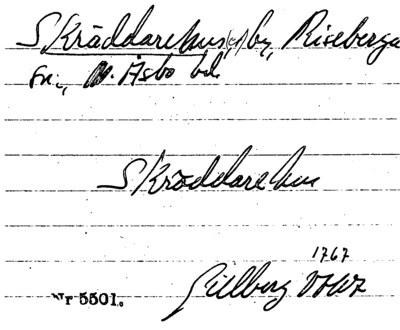 Skräddarehus(,) by, Riseberga
sn., N. Åsbo hd.
Skräddarehus
1767
Gillberg
Nr 5501.